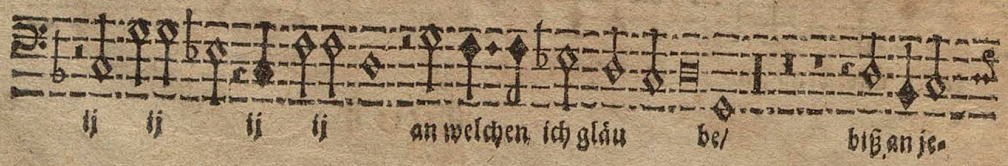 ij ij ij ij an welchen ich gläu be/ biß an je-